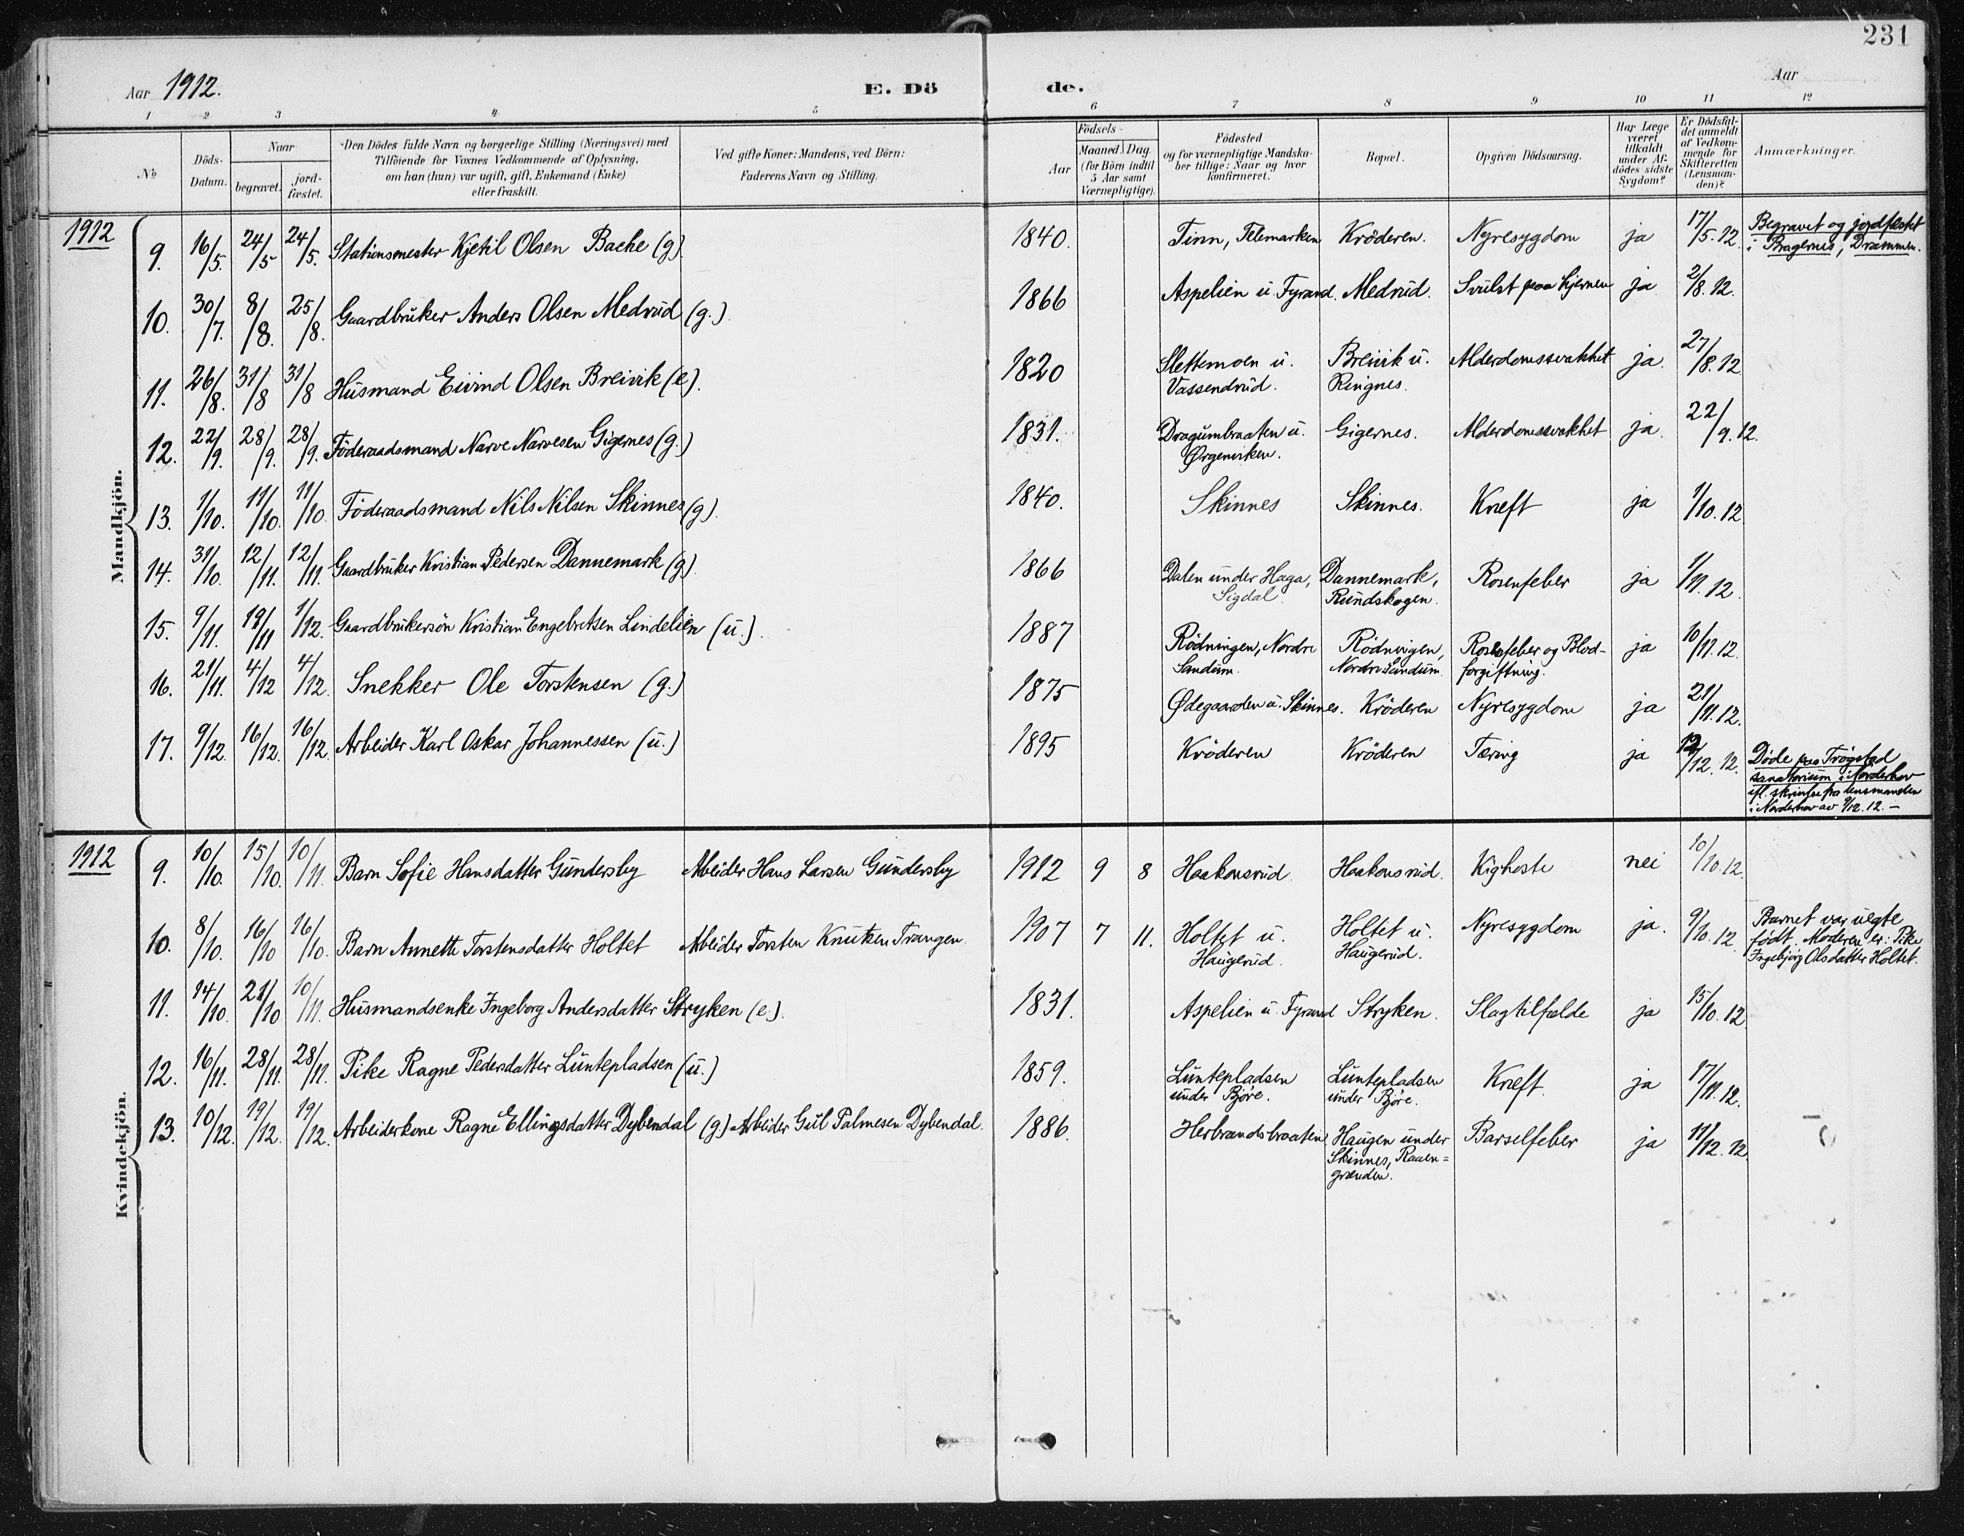 231
Aar 1912. E. Dö de. Aar
1 2 3 4 5 6 7 8 9 10 11 12
No
Döds-Datum.
Naar
begravet.
jord-fæstet.
Den Dödes fulde Navn og borgerlige Stilling (Næringsvei) med
Tilföiende for Voxnes Vedkommende af Oplysning,
om han (hun) var ugift, gift, Enkemand (Enke)
eller fraskilt.
Ved gifte Koner: Mandens, ved Börn:
Faderens Navn og Stilling.
Födsels-
Aar
Maaned Dag
(for Börn indtil
5 Aar samt
Værnepligtige).
Födested
og for værnepligtige Mandska-
ber tillige: Naar og hvor
konfirmeret.
Bopæl.
Opgiven Dödsaarsag.
Har Læge
været
tilkaldt
under Af-
dödes sidste
Sygdom?
Er Dödsfal-
det anmeldt
af Vedkom-
mende for
Skifteretten
(Lensman-
den)?
Anmærkninger.
Mandkjön.
1912 9. 16/5. 24/5 24/5. Stationsmester Kjetil Olsen Backe (g). 1840. Tinn, Telemarken Kröderen. Nyresygdom ja 17/5.12. Begravet og jordfæstet
i Bragernes, Drammen.
10. 30/7. 8/8. 25/8. Gaardbruker Anders Olsen Medrud (g.) 1866 Aspelien u. Fyrand. Medrud. Svulst paa hjernen ja 2/8.12.
11. 26/8. 31/8 31/8 Husmand Eivind Olsen Breivik (e). 1820 Slettemoen u. Breivik u. Alderdomssvakhet ja. 27/8.12
Vassendrud. Ringnes.
12. 22/9. 28/9. 28/9. Föderaadsmand Narve Narvesen Gigernes (g.) 1831. Dragumbraaten u. Gigernes. Alderdomssvakhet ja. 22/9.12.
Ørgenviken.
13. 1/10. 11/10. 11/10 Föderaadsmand Nils Nilsen Skinnes (g). 1840. Skinnes Skinnes. Kræft ja 1/10.12
14. 31/10. 12/11. 12/11. Gaardbruker Kristian Pedersen Dannemark (g). 1866 Dalen under Haga, Dannemark, Rosenfeber ja 1/11.12.
Sigdal. Rundskogen.
15. 9/11. 19/11 1/12. Gaardbrukersön Kristian Engebretsen Lindelien (u.). 1887 Rödningen, Nordre Rödningen, Rosefeber og Blod- ja 10/11.12.
Sandum. Nordre Sandum. forgiftning.
16. 21/11. 4/12 4/12. Snekker Ole Torstensen (g.) 1875 Ødegaarden u. Skinnes. Kröderen Nyresygdom ja 21/11.12.
17. 9/12. 16/12. 16/12. Arbeider Karl Oskar Johannessen (u.) 1895 Kröderen Kröderen Tæring ja 12/12.12. Døde paa Trøgstad
sanatorium i Norderhov
ifl. skrivelse fra lensmanden
i Norderhov av 9/12.12.-
Kvindekjön.
1912 9. 10/10. 15/10. 10/11. Barn Sofie Hansdatter Gundersby Arbeider Hans Larsen Gundersby 1912 9 8 Haakonsrud. Haakonsrud. Kighoste nei 10/10.12.
10. 8/10. 16/10 16/10. Barn Annette Torstensdatter Holtet Arbeider Torsten Knutsen Trangen. 1907 7 11. Holtet u. Holtet u. Nyresygdom ja. 9/10.12. Barnet var uegte
Haugerud. Haugerud. født. Moderen er: Pike
Ingebjörg Olsdatter Holtet.
11. 14/10. 21/10 10/11. Husmandsenke Ingeborg Andersdatter Stryken (e.). 1831. Aspelien u. Fyrand Stryken. Slagtilfælde ja 15/10.12
12. 16/11. 28/11. 28/11. Pike Ragne Pedersdatter Luntepladsen (u.) 1859. Luntepladsen Luntepladsen Kræft. ja 17/11.12.
under Björe. under Björe.
13. 10/12. 19/12. 19/12. Arbeiderkone Ragne Ellingsdatter Dybendal (g) Arbeider Gul Palmesen Dybendal. 1886. Herbrandsbraaten Haugen under Barselfeber ja 11/12.12.
Skinnes, Raaen-
grænden.